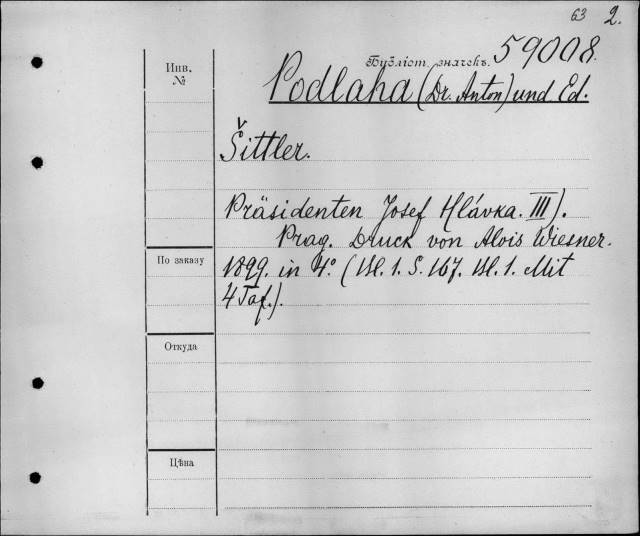 63 2.
Инв.
№
Бубліст. значекъ. 59008.
Podlaha (Dr. Anton) und Ed.
Šittler.
Präsidenten Josef Hlávka. III).
Prag. Druck von Alois Wiesner.
По заказу
1899. in 4° (Bl. 1. S. 167. Bl. 1. Mit
4 Taf.).
Откуда
Цѣна